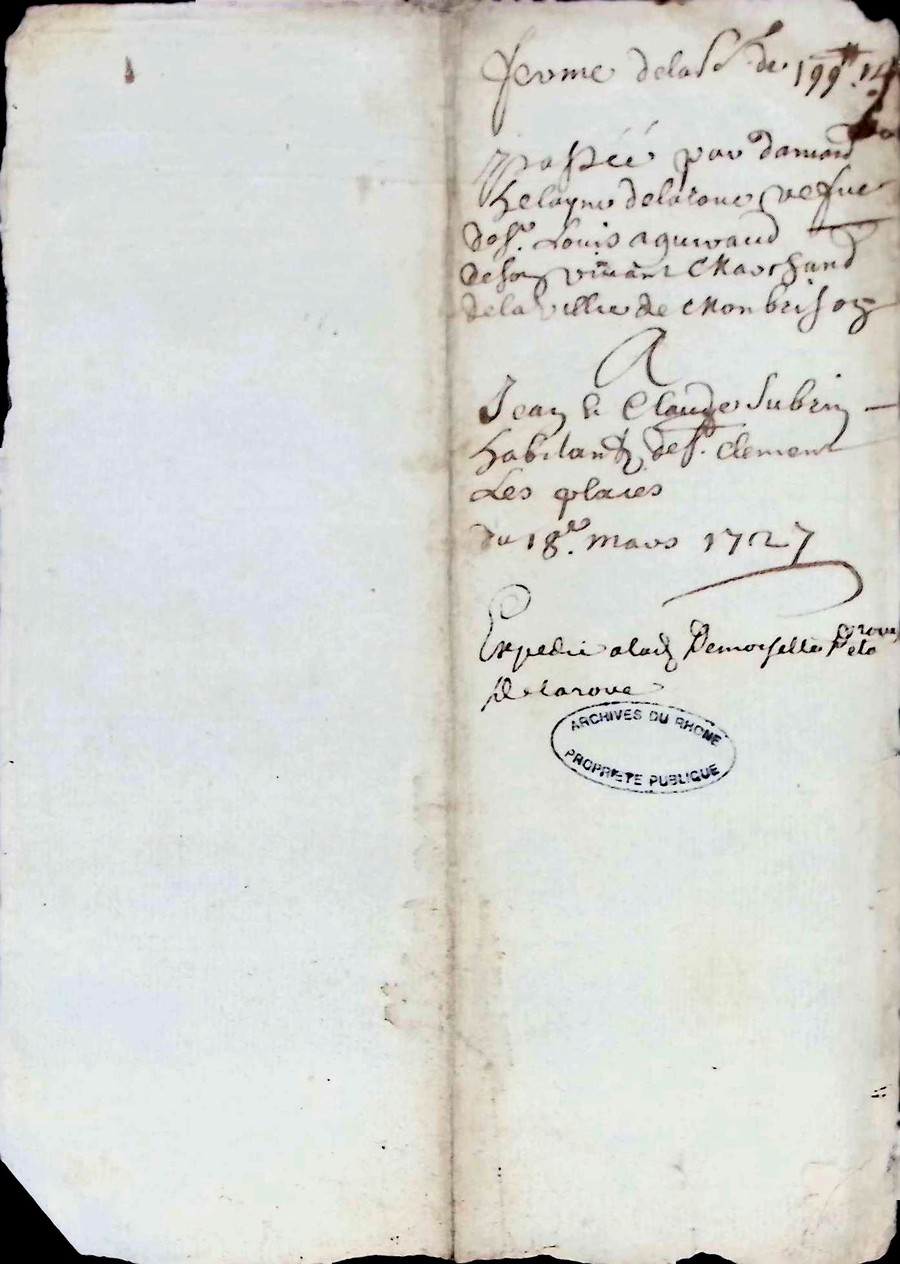 ferme dela S.e de 199ᵗᵗ. 14
passéé par damois
helayne delaroue vefue
de sr. Louis aguiraud
de son viuant Marchand
dela ville de Monbrison
A
Jean & Claude Subrin
habitants de st. Clement
Les places
du 18e. mars 1727
Expedié alad Demoiselle
Delaroue
ARCHIVES DU RHONE
PROPRIETE PUBLIQUE